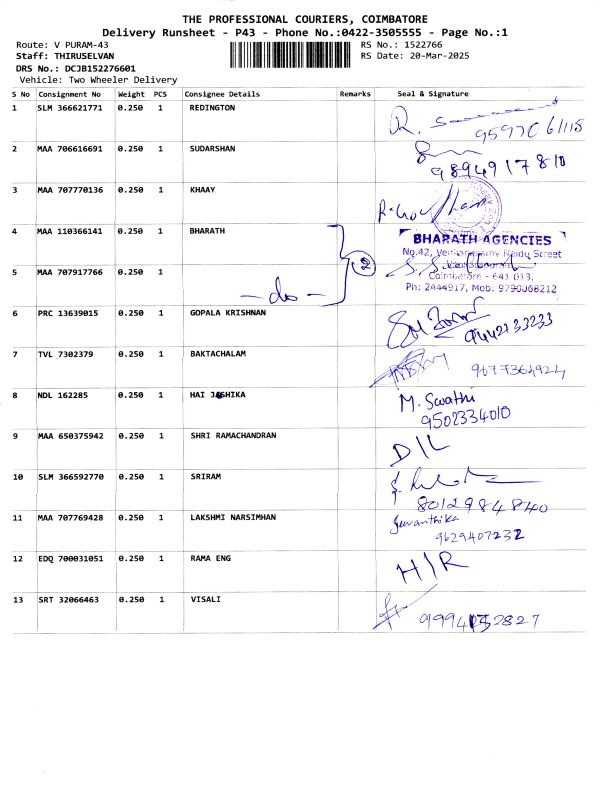 THE PROFESSIONAL COURIERS, COIMBATORE
Delivery Runsheet - P43 - Phone No.:0422-3505555 - Page No.:1
Route: V PURAM-43 RS No.: 1522766
Staff: THIRUSELVAN RS Date: 20-Mar-2025
DRS No.: DCJB152276601
Vehicle: Two Wheeler Delivery
S No Consignment No Weight PCS Consignee Details Remarks Seal & Signature
1 SLM 366621771 0.250 1 REDINGTON
2 MAA 706616691 0.250 1 SUDARSHAN
9894917810
3 MAA 707770136 0.250 1 KHAAY
4 MAA 110366141 0.250 1 BHARATH
BHARATH AGENCIES
2
5 MAA 707917766 0.250 1
Coimbatore - 641 013.
- do - Ph: 2444917, Mob: 9790068212
6 PRC 13639015 0.250 1 GOPALA KRISHNAN
9442133233
7 TVL 7302379 0.250 1 BAKTACHALAM
9677364924
8 NDL 162285 0.250 1 HAI JASHIKA M. Swathi
9502334010
9 MAA 650375942 0.250 1 SHRI RAMACHANDRAN
D/L
10 SLM 366592770 0.250 1 SRIRAM
8012984840
11 MAA 707769428 0.250 1 LAKSHMI NARSIMHAN
9629407232
12 EDQ 700031051 0.250 1 RAMA ENG H/R
13 SRT 32066463 0.250 1 VISALI